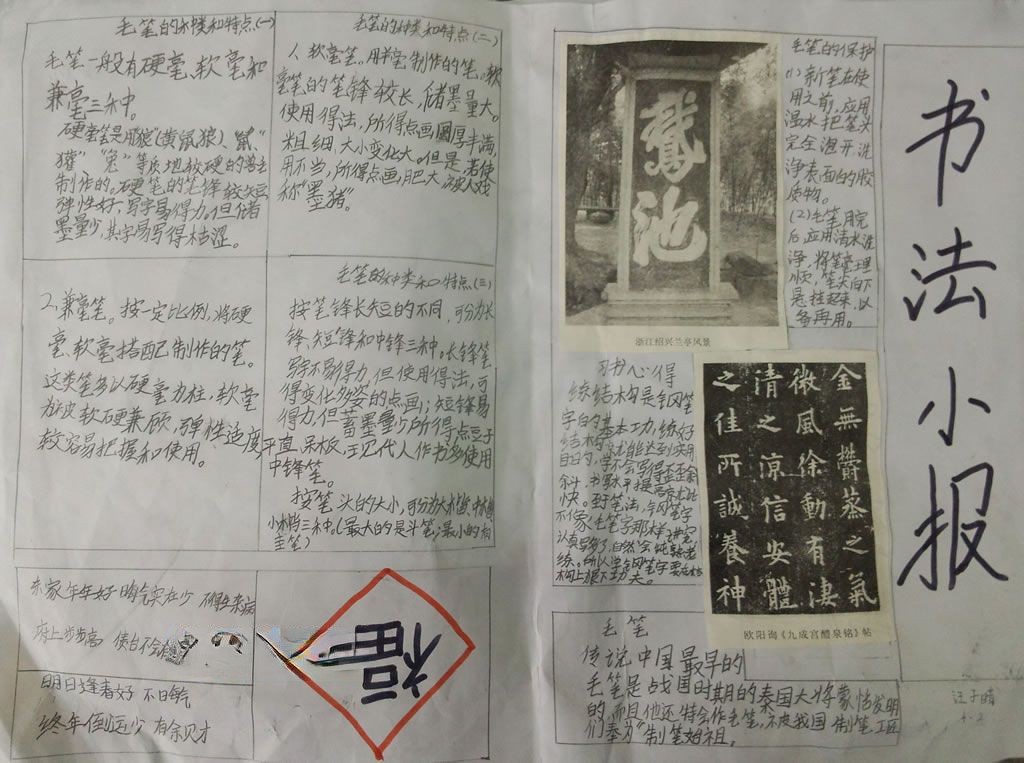 毛笔的种类和特点(一)
毛笔一般有硬毫、软毫和
兼毫三种。
硬毫笔是用"狼"(黄鼠狼)"鼠"
"獾""兔"等质地较硬的兽毛
制作的。硬笔的笔锋较短
弹性好,写字易得力。但储
墨量少,其字易写得枯涩。
毛笔的种类和特点(二)
1、软毫笔。用羊毫制作的笔。软
毫笔的笔锋较长,储墨量大。
使用得法,所得点画圆厚丰满,
粗细、大小变化大。但是,若使
用不当,所得点画,肥大
称"墨猪"。
2、兼毫笔。按一定比例,将硬
毫、软毫搭配制作的笔。
这类笔多以硬毫为柱,软毫
为皮软硬兼顾,弹性适度
较容易把握和使用。
毛笔的种类和特点(三)
按笔锋长短的不同,可分为长
锋、短锋和中锋三种。长锋笔
易得力,但使用得法,可
得变化多姿的点画;短锋易
得力,但蓄墨量少所得点
平直、呆板,现代人作书多使用
中锋笔。
按笔头的大小,可分为大楷、中楷
小楷三种。(最大的是斗笔;最小的
圭笔)
东家年年好晦气实在少
府上步步高
明日逢春好不日
终年倒运少有余见才
福
毛笔的保护
(1)新笔在使
用之前,应用
温水把笔头
完全泡开,洗
净表面的胶
质物。
(2)毛笔用完
后,应用清水洗
净,将笔毫理
顺,笔尖向下
悬挂起来,以
备再用。
鵞池
浙江绍兴兰亭风景
习书心得
练结构是钢笔
字的基本工功,练好
结构
快。至于笔法,钢笔字
不像毛笔字那样讲究
认真写多了,自然会
练。所以学钢笔字要在结
构上狠下功夫。
金無欝蒸之氣
微風徐動有淒
清之涼信安體
之佳所誠養神
欧阳询《九成宫醴泉铭》帖
毛笔
传说中国最早的
毛笔是战国时期的秦国大将蒙恬发明
的,而且他还特会作毛笔,不愧我国制笔工匠
们奉为"制笔始祖。
书法小报
汪子晴